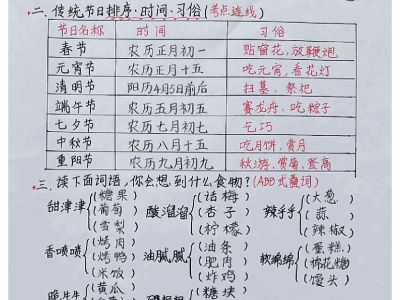 二、传统节日排序·时间·习俗(考点连线)
节日名称 时间 习俗
春节 农历正月初一 贴窗花,放鞭炮
元宵节 农历正月十五 吃元宵,看花灯
清明节 阳历4月5日前后 扫墓、祭祀
端午节 农历五月初五 赛龙舟、吃粽子
七夕节 农历七月初七 乞巧
中秋节 农历八月十五 吃月饼,赏月
重阳节 农历九月初九 赏菊,登高
三、读下面词语,你会想到什么食物?(ABB式叠词)
(糖果) (话梅) (大葱)
甜津津(葡萄) 酸溜溜(杏子) 辣乎乎(蒜)
(雪梨) (柠檬) (辣椒)
(烤肉) (油条) (蛋糕)
香喷喷(烤鸭) 油腻腻(肥肉) 软绵绵(棉花糖)
(米饭) (炸鸡) (馒头)
(黄瓜 (糖块
脆生生